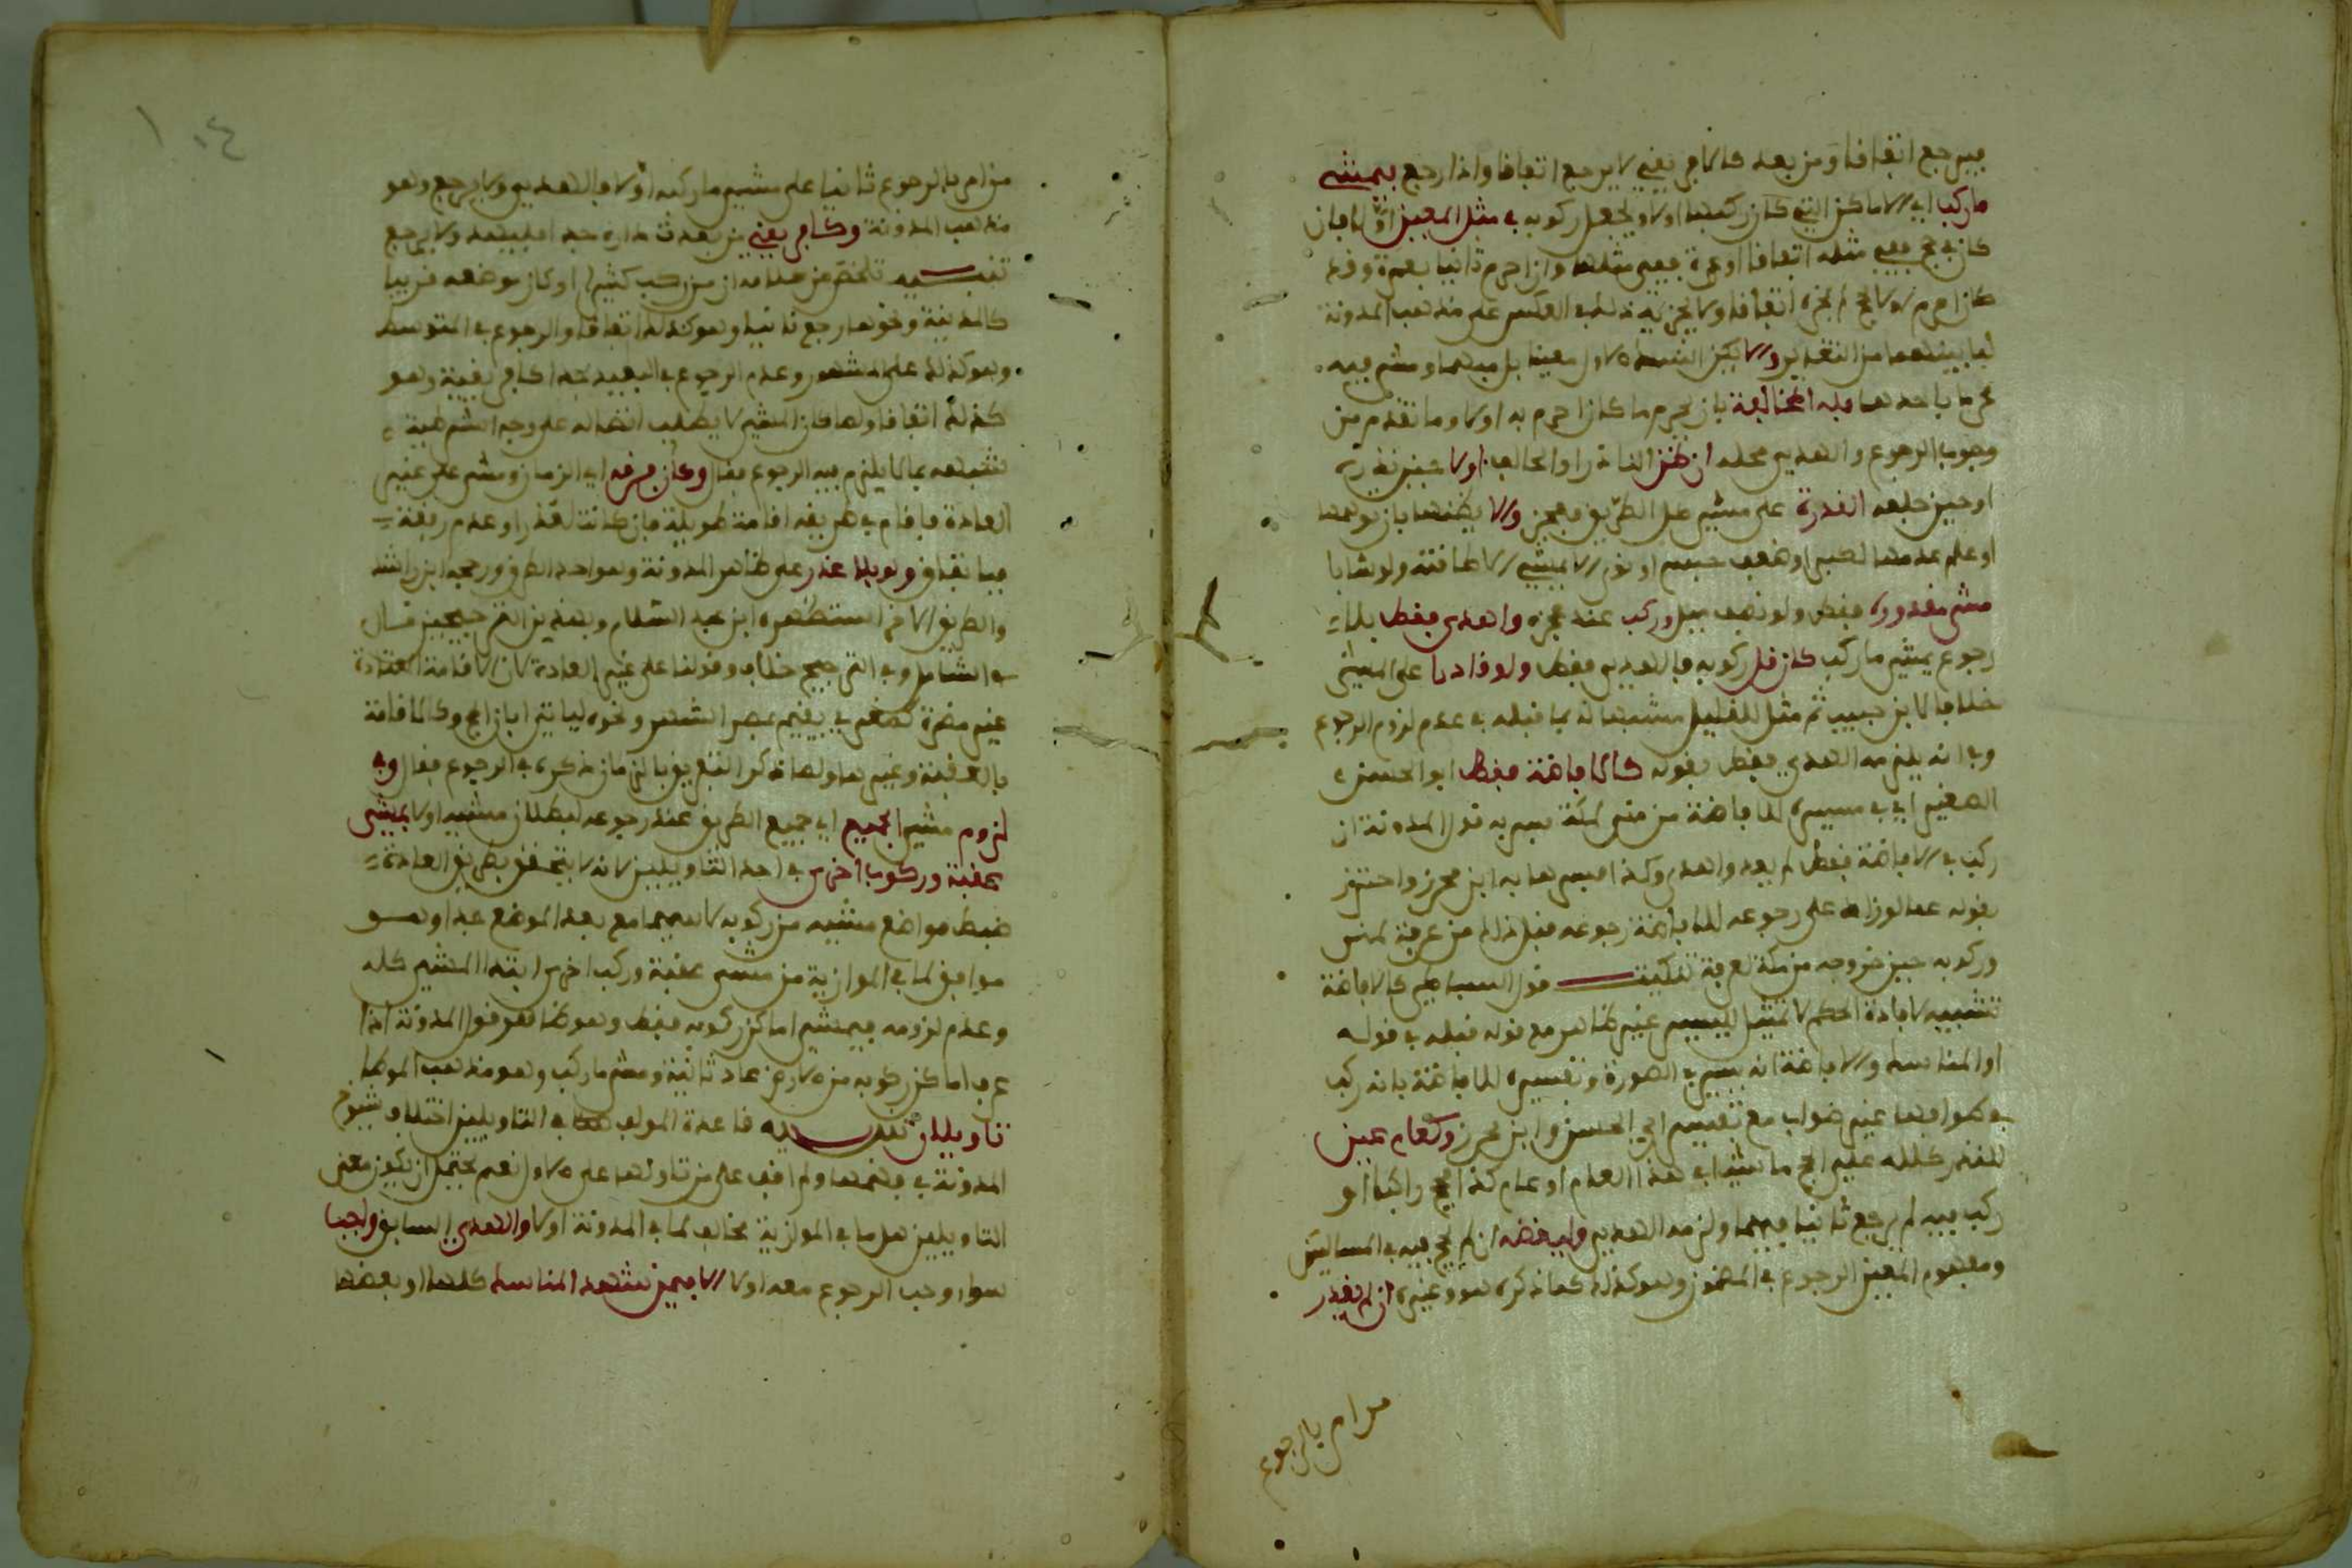 فيرجع اتفاقا ومن بعد كالافريقي لا يرجع اتفاقا واذا رجع فيمشي
ما ركب اي الاماكن التي كان ركبها اولا ويجعل ركوبه في مثل المعين اولا فان
كان في حج ففي مثله اتفاقا او عمرة ففي مثلها وان احرم ثانيا بعمرة وقد
كان احرم اولا بحج لم يجزه اتفاقا ولا يجزيه ذلك في العكس على مذهب المدونة
لما بينهما من التقدير والا يكن الشيء الاول معينا بل مبهما ومشى فيه
محرما باحدهما فله المخالفة بان يحرم بما كان احرم به اولا وما تقدم من
وجوب الرجوع والهدي محله ان ظن الناذر او الحالف اولا حين نذره
او حين حلفه القدرة على مشي كل الطريق فعجز والا يظنها بان توهمها
او علم عدمها لضعف جسم او نوى الا يمشي الا طاقته ولو شابا
مشى مقدوره فقط ولو نصف ميل وركب عند عجزه واهدى فقط بلا
رجوع يمشي ما ركب كان قل ركوبه فالهدي فقط ولو قادرا على المشي
خلافا لابن حبيب ثم مثل للقليل مشبها له بما قبله في عدم لزوم الرجوع
وفي انه يلزمه الهدي فقط بقوله كالافاضة فقط ابو الحسن
الصغير اي في مسيره للافاضة من منى لمكة فسر به قول المدونة ان
ركب في الافاضة فقط لم يعد واهدى وكذا فسرها به ابن محرز واحترز
بقوله عما لو زاد على رجوعه للافاضة رجوعه قبل ذلك من عرفة لمنى
وركوبه حين خروجه من مكة لعرفة تنكيت قول البساطي كالافاضة
تشبيه لافادة الحكم لا تمثيل لليسير غير ظاهر مع قوله قبله في قوله
او المناسك والافاضة انه يسير في الصورة وتفسيره للافاضة بانه ركب
في طوافها غير صواب مع تفسير ابي الحسن وابن محرز وكعام عين
للنذر كلله علي الحج ماشيا في هذا العام او عام كذا فحج راكبا او
ركب فيه لم يرجع ثانيا فيهما ولزمه الهدي وليقضه ان لم يحج فيه في المسالتين
ومفهوم المعين الرجوع في المضمون وهو كذلك كما ذكره هو وغيره ان لم يقدر
من ام بالرجوع
من ام بالرجوع ثانيا على مشي ما ركبه اولا فالهدي ولا يرجع وهو
مذهب المدونة وكافريقي من بعدت داره جدا فليهد ولا يرجع
تنبيه تلخص من كلامه ان من ركب كثيرا وكان موضعه قريبا
كالمدينة ونحوها رجع ثانيا وهو كذلك اتفاقا والرجوع في المتوسط
وهو كذلك على المشهور وعدم الرجوع في البعيد جدا كافريقية وهو
كذلك اتفاقا ولما كان المشي لا يطلب اتصاله على وجه الشرطية
شبهه بما لا يلزم فيه الرجوع فقال وكان فرقه اي الزمان ومشى على غير
العادة فاقام في طريقه اقامة طويلة فان كانت لعذر او عدم رفقة
فباتفاق ولو بلا عذر على ظاهر المدونة وهو احد الطرق ورجحه ابن راشد
والطريق الاخر استظهره ابن عبد السلام وبهذين الترجيحين قال
في الشامل وفي الترجيح خلاف وقولنا على غير العادة لان الاقامة المعتادة
غير مضرة كمغربي يقيم بمصر الشهر ونحوه لياتي ابان الحج وكالاقامة
بالعقبة وغيرها ولما ذكر التفريق بالزمان ذكره في الرجوع فقال وفي
لزوم مشي الجميع اي جميع الطريق عند رجوعه لبطلان مشيه اولا بمشي
عقبة وركوب اخرى في احد التاويلين لانه لا يتحقق بطريق العادة
ضبط مواضع مشيه من ركوبه لا سيما مع بعد الموضع جدا وهو
موافق لما في الموازية من مشى عقبة وركب اخرى ابتدا المشي كله
وعدم لزومه فيمشي اماكن ركوبه فقط وهو ظاهر قول المدونة اذا
عرف اماكن ركوبه من الارض عاد ثانية ومشى ما ركب وهو مذهب الموطا
تاويلان تنبيه قاعدة المولف في التاويلين اختلاف شيوخ
المدونة في فهمها ولم اقف على من تاولها على الاول نعم يحتمل ان يكون معنى
التاويلين هل ما في الموازية مخالف لما في المدونة او لا والهدي السابق واجب
سواء وجب الرجوع معه اولا الا فيمن شهد المناسك كلها او بعضها
١٠٤